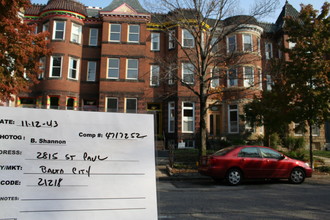 DATE: 11-12-43
PHOTOG: B. Shannon Comp #: 4717252
ADDRESS: 2815 ST PAUL
CITY/MKT: BALTO CITY
CODE: 21218
NOTES: